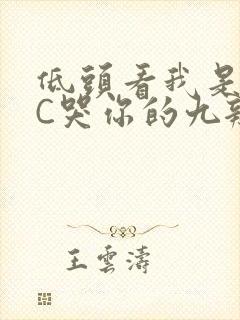 低頭看我是
C哭你的九
王雲濤